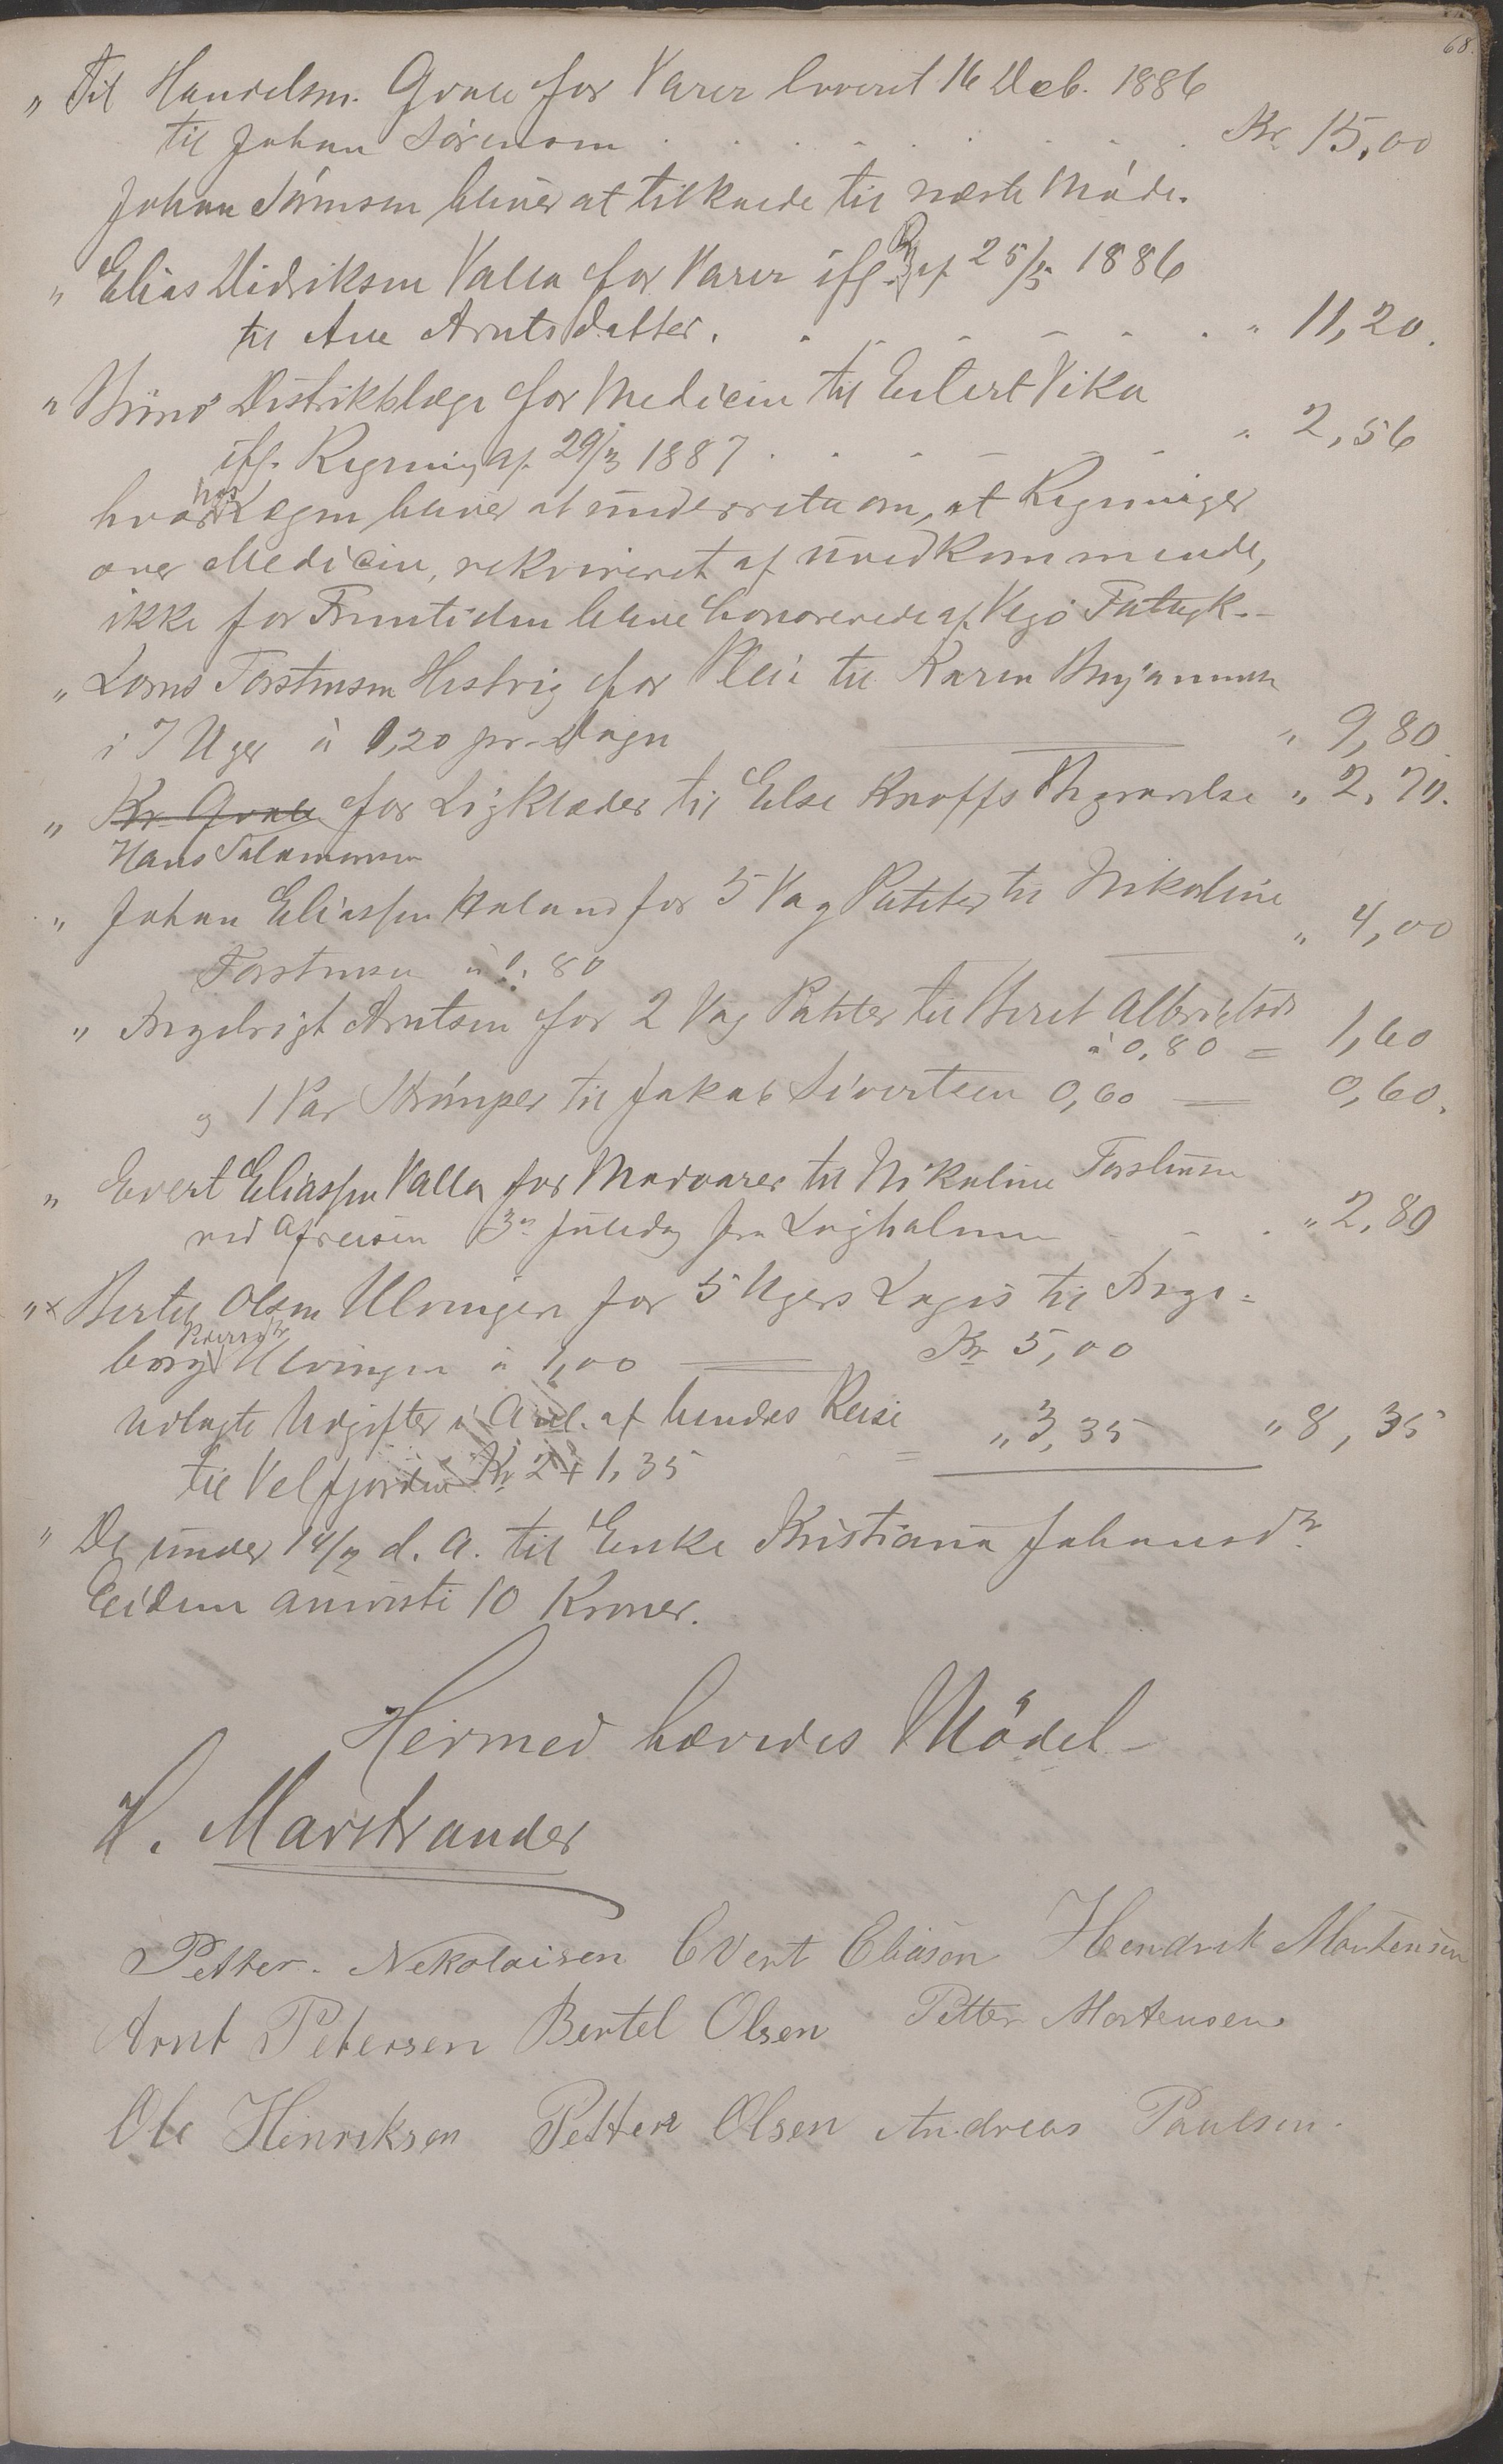 68.
" Til Handelsm. Gvale for Varer leveret 16 Deb. 1886
til Johan Sörensen . . . . . . . . Kr 15,00
Johan Sörensen bliver at tilkalde til næste Möde.
" Elias Didriksen Valla for Varer ifg. Rg af 25/3 1886
til Ane Arntsdatter. . - - - - . . " 11,20.
" Distriktslæge for Medicin til Eilert Vika
ifg. Regning af 29/3 1887 . . - - - - " 2,56
hvorhos Lægen bliver at underrette om, at Regninger
over Medicin, rekvireret af uvedkommende,
ikke for Fremtiden blive honorerede af Vegö Fattigk.-
" Lorns Torstensen Hestvig for Pleie til Karen Benjaminsen
i 7 Uger à 0,20 pr. Dagn " 9,80
" Kr. Gvale for Ligklæder til Else Knoffs Begravelse " 2,70.
Hans Salamonsen
" Johan Eliassen Haland for 5 Vag Poteter til Nikoline
Torstensen à 0: 80 " 4,00
" Ingebrigt Arntsen for 2 Vag Poteter til Beret Albrigtsdr
à 0,80 = 1,60
og 1 Par Strömper til Jakob Sivertsen 0,60 — 0,60.
" Evert Eliassen Valla for Madvarer til Nikoline Torstensen
ved Afreisen 3die Juledag fra - - . " 2,80
"x Bertel Olsen Ulvingen for 5 Ugers Logis til Inge=
borg Ulvingen à 1,00 — Kr 5,00
Udlagte Udgifter i Anl. af hendes Reise
til Velfjorden Kr 2 + 1,35 = " 3,35 " 8,35
" De under 14/2 d. A. til Enke Kristiana Johansdr
Eidem anviste 10 Kroner.
Hermed hævedes Mödet -
H. Marstrander
Petter. Nekolaisen Evert Eliason Hendrik Mortensen
Arnt Petersen Bertel Olsen Petter Mortensen
Ole Henriksen Petter Olsen Andreas Paulsen.